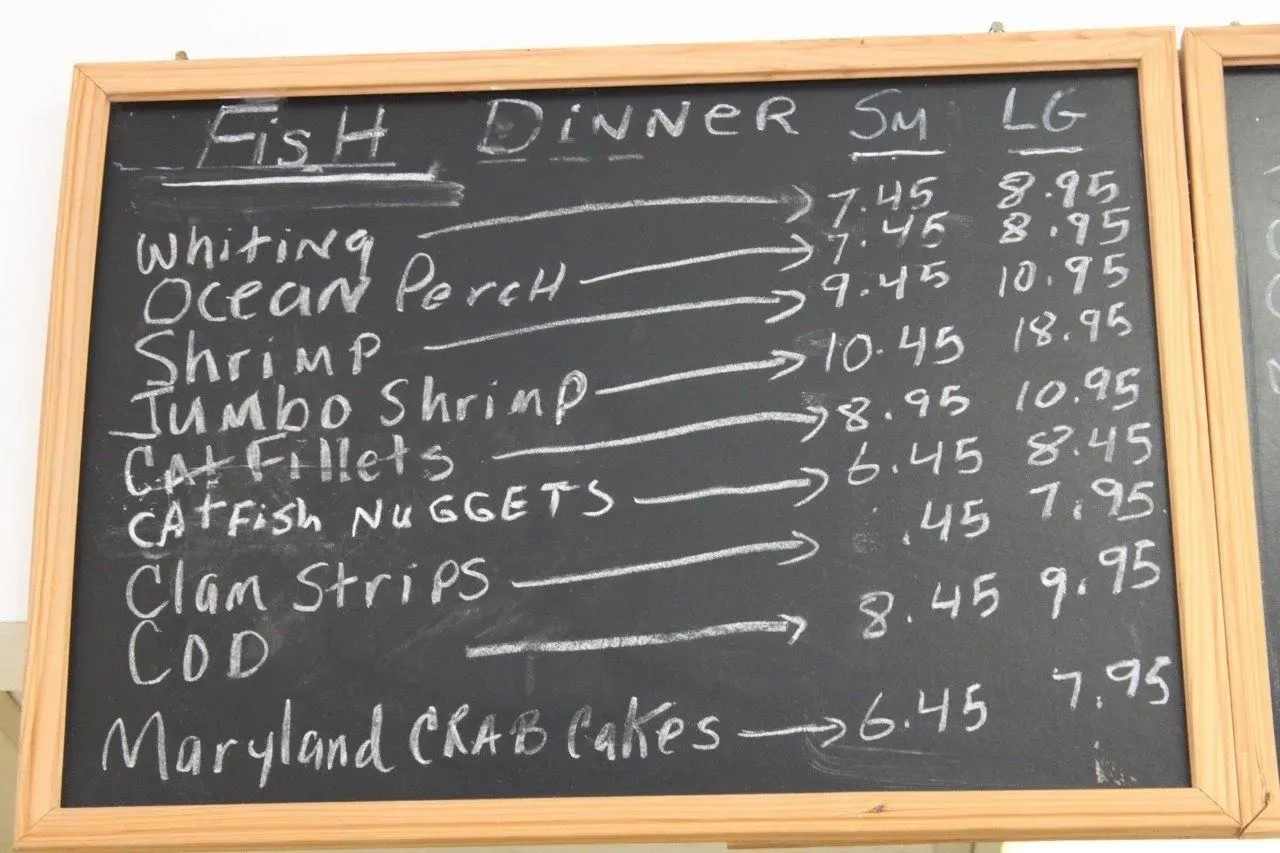 FisH DiNNeR SM LG
Whiting 7.45 8.95
OceaN PercH 7.45 8.95
Shrimp 9.45 10.95
JUMBO Shrimp 10.45 18.95
CAt Fillets 8.95 10.95
CAtFish NuGGETS 6.45 8.45
Clam Strips .45 7.95
COD 8.45 9.95
Maryland CRAB Cakes 6.45 7.95